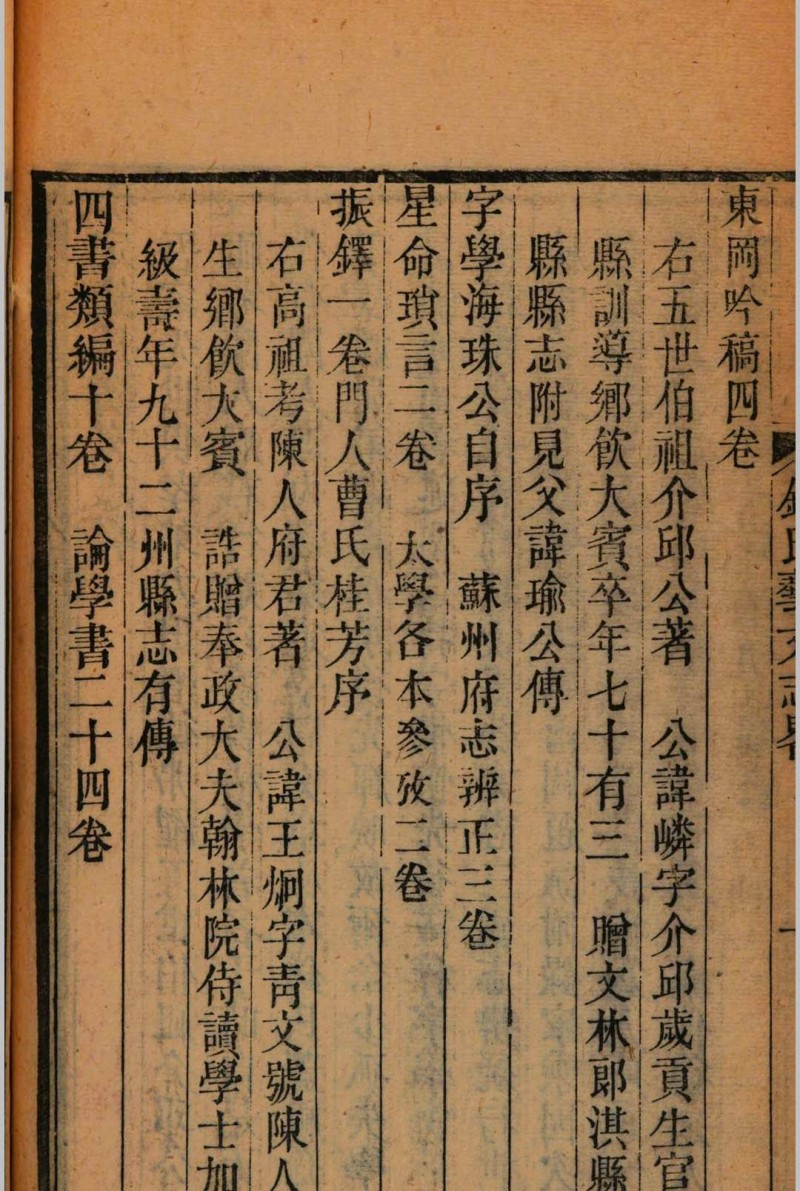 錢氏藝文志畧
一
東岡吟稿四卷
右五世伯祖介邱公著　公諱嶙字介邱歲貢生官
縣訓導鄉飲大賓卒年七十有三　贈文林郎淇縣
縣縣志附見父諱瑜公傳
字學海珠公自序　蘇州府志辨正三卷
星命瑣言二卷　大學各本參攷二卷
振鐸一卷門人曹氏桂芳序
右高祖考陳人府君著　公諱王炯字青文號陳人
生鄉飲大賓　誥贈奉政大夫翰林院侍讀學士加
級壽年九十二州縣志有傳
四書類編十卷　論學書二十四卷